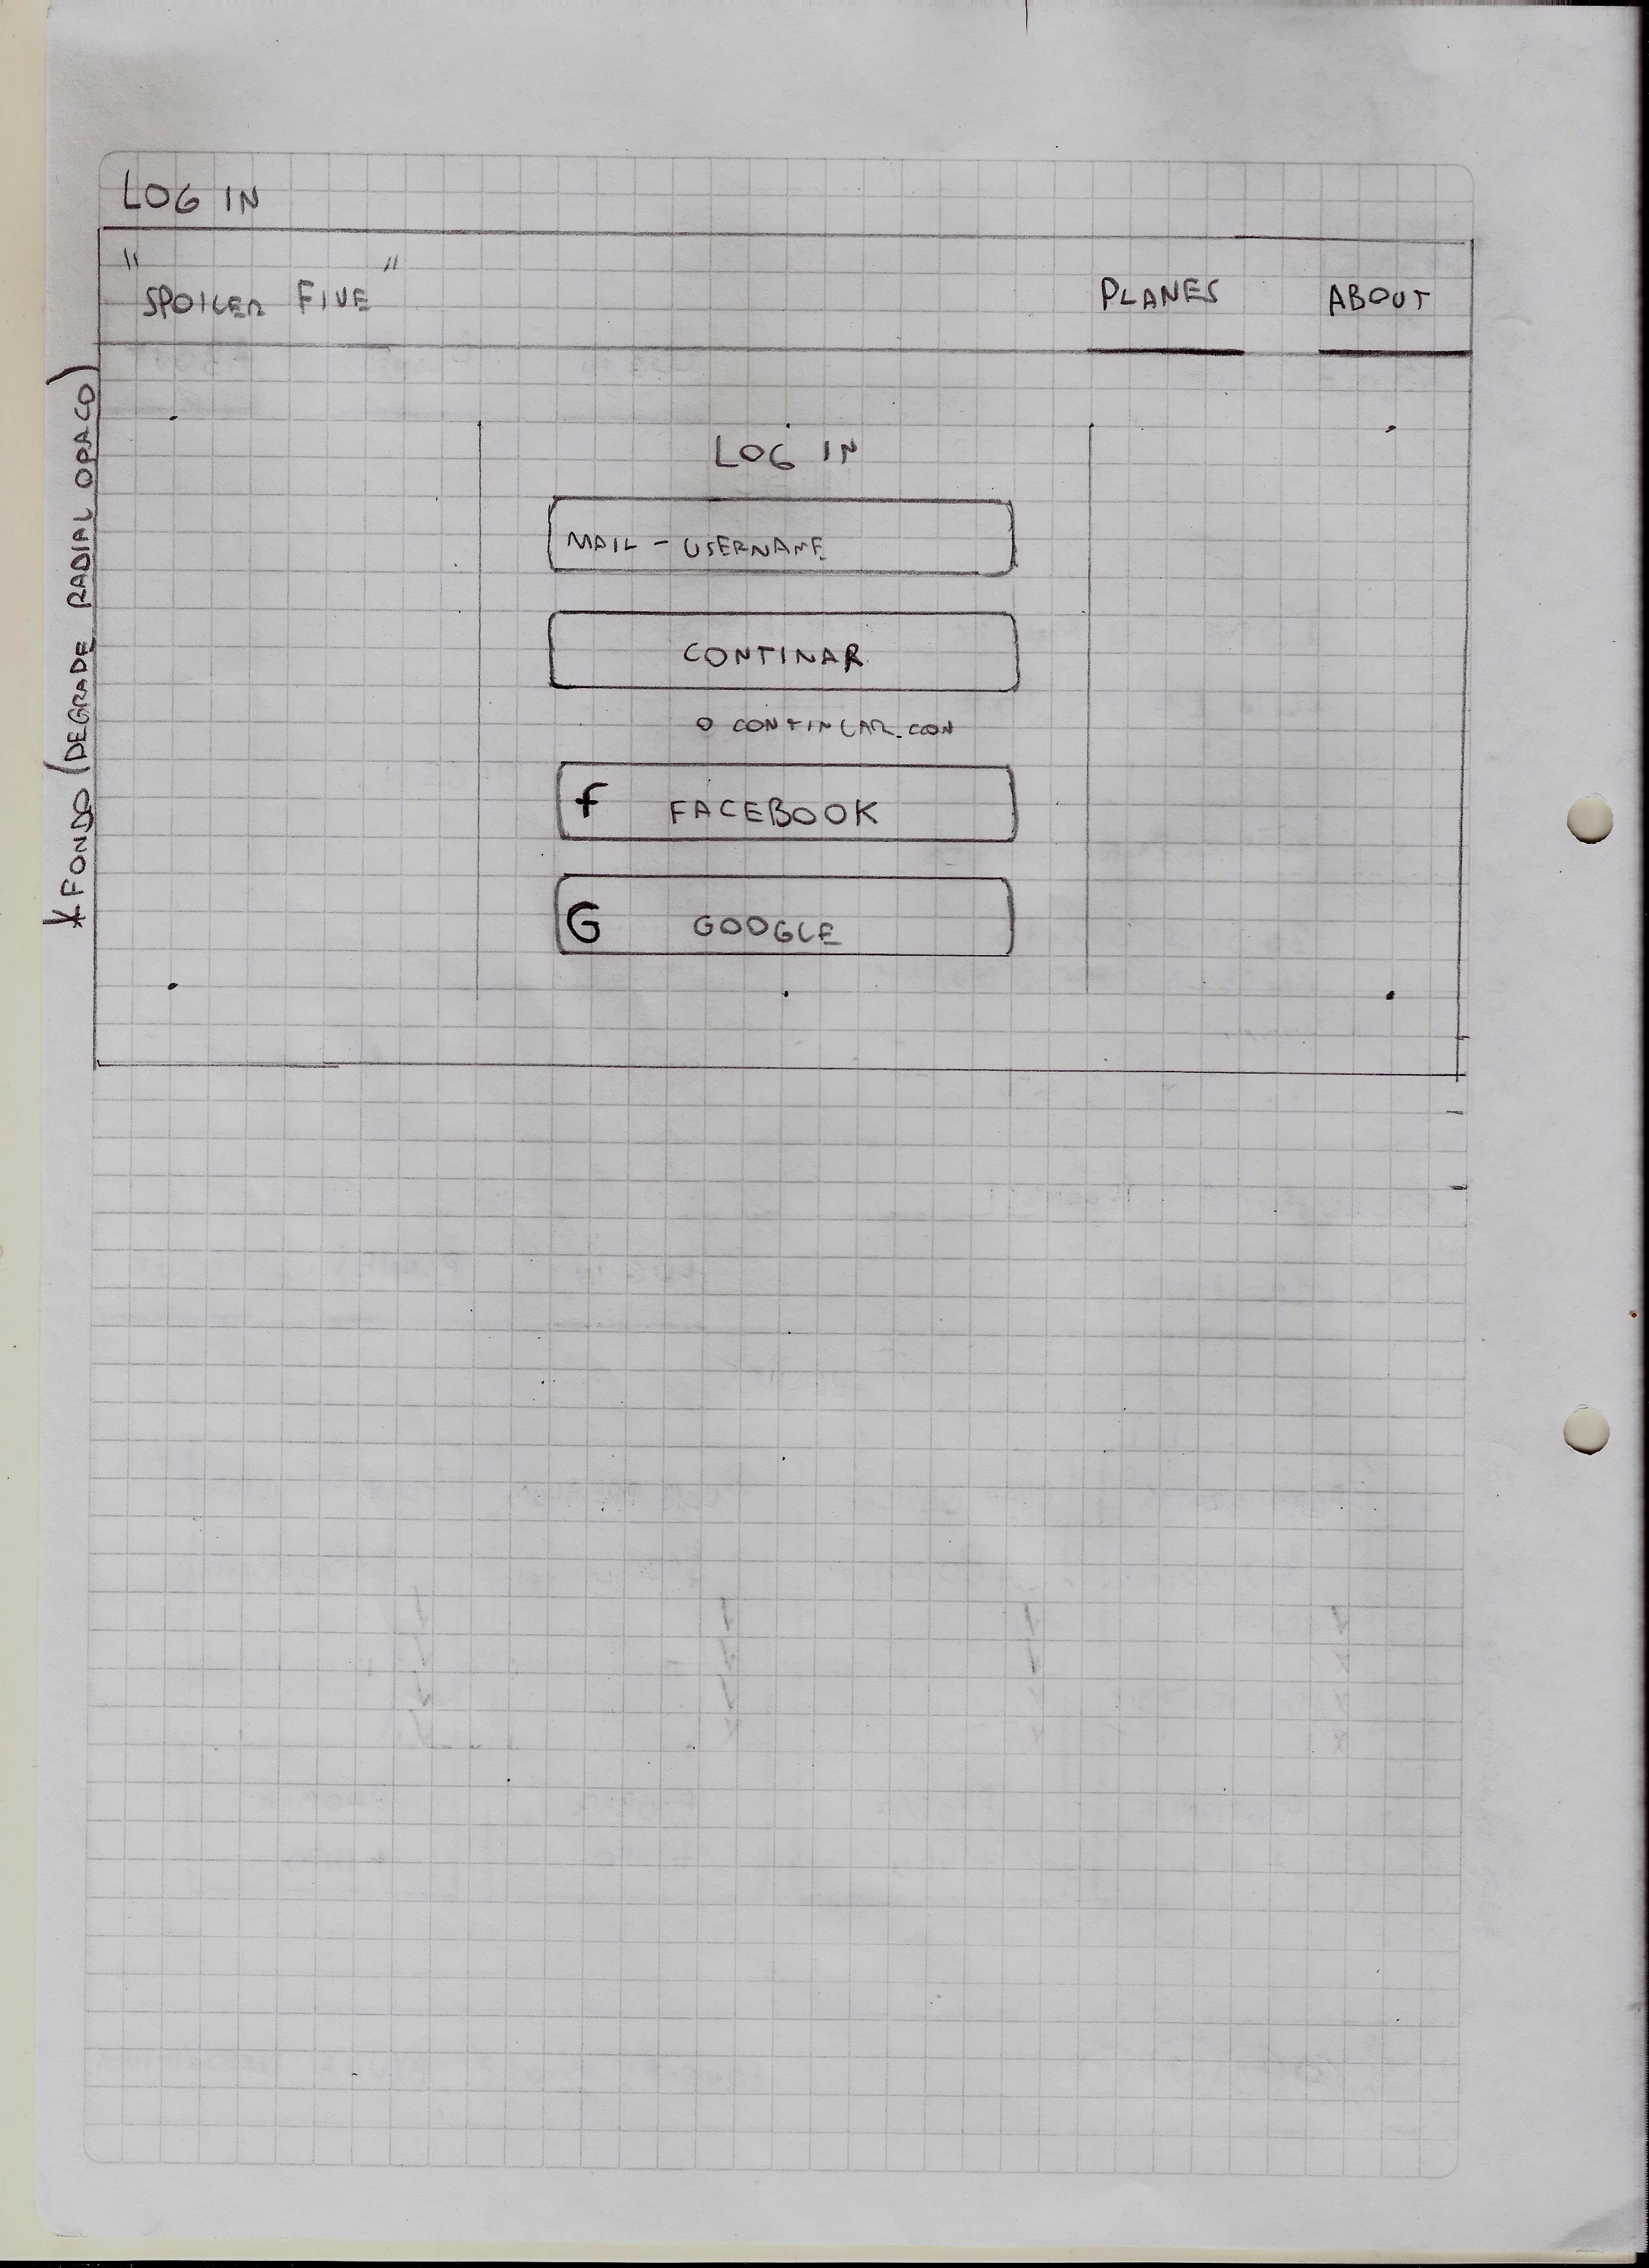 LOG IN
" SPOILER FIVE "
PLANES
ABOUT
* FONDO (DEGRADE RADIAL OPACO)
LOG IN
MAIL - USERNAME
CONTINAR
O CONTINUAR CON
f FACEBOOK
G GOOGLE